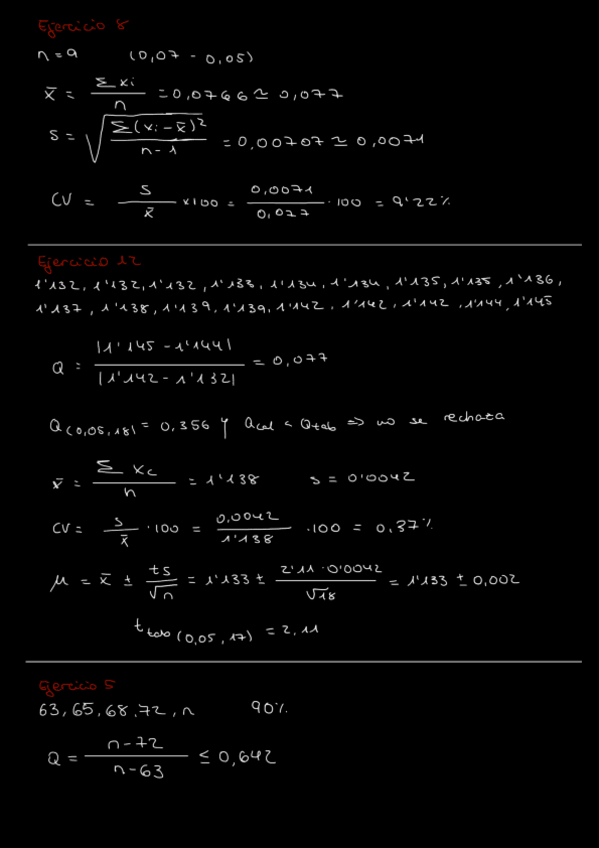 Ejercicio 8
n = 9 (0,07 - 0,05)
x̄ = Σxi / n = 0,0766 ≃ 0,077
s = √(Σ(xi - x̄)² / n - 1) = 0,00707 ≃ 0,0071
CV = s / x̄ × 100 = 0,0071 / 0,077 · 100 = 9'22%
Ejercicio 12
1'132, 1'132, 1'132, 1'133, 1'134, 1'134, 1'135, 1'135, 1'136,
1'137, 1'138, 1'139, 1'139, 1'142, 1'142, 1'142, 1'144, 1'145
Q = |1'145 - 1'144| / |1'142 - 1'132| = 0,077
Q(0,05,18) = 0,356 y Qcal < Qtab => no se rechaza
x̄ = Σxc / n = 1'138 s = 0'0042
CV = s / x̄ · 100 = 0,0042 / 1'138 · 100 = 0,37%
μ = x̄ ± ts / √n = 1'133 ± 2'11 · 0'0042 / √18 = 1'133 ± 0,002
ttab(0,05,17) = 2,11
Ejercicio 5
63, 65, 68, 72, n 90%
Q = n - 72 / n - 63 ≤ 0,642